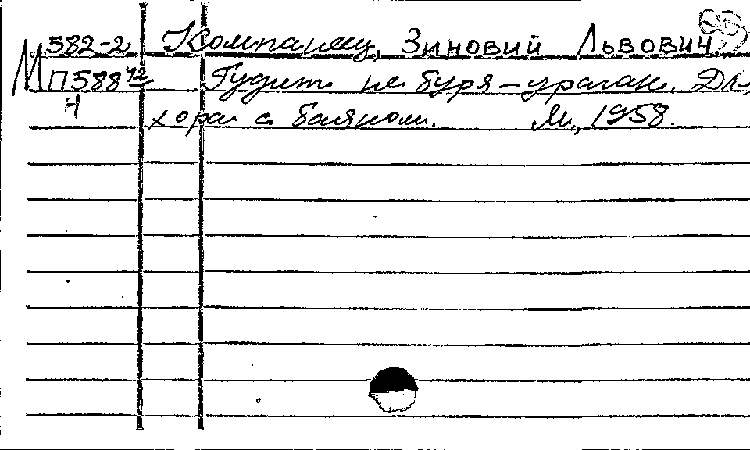 582-2 Компанеец, Зиновий Львович
М П588 12 Гудит не буря - ураган. Для
Н хора с баяном. М., 1958.